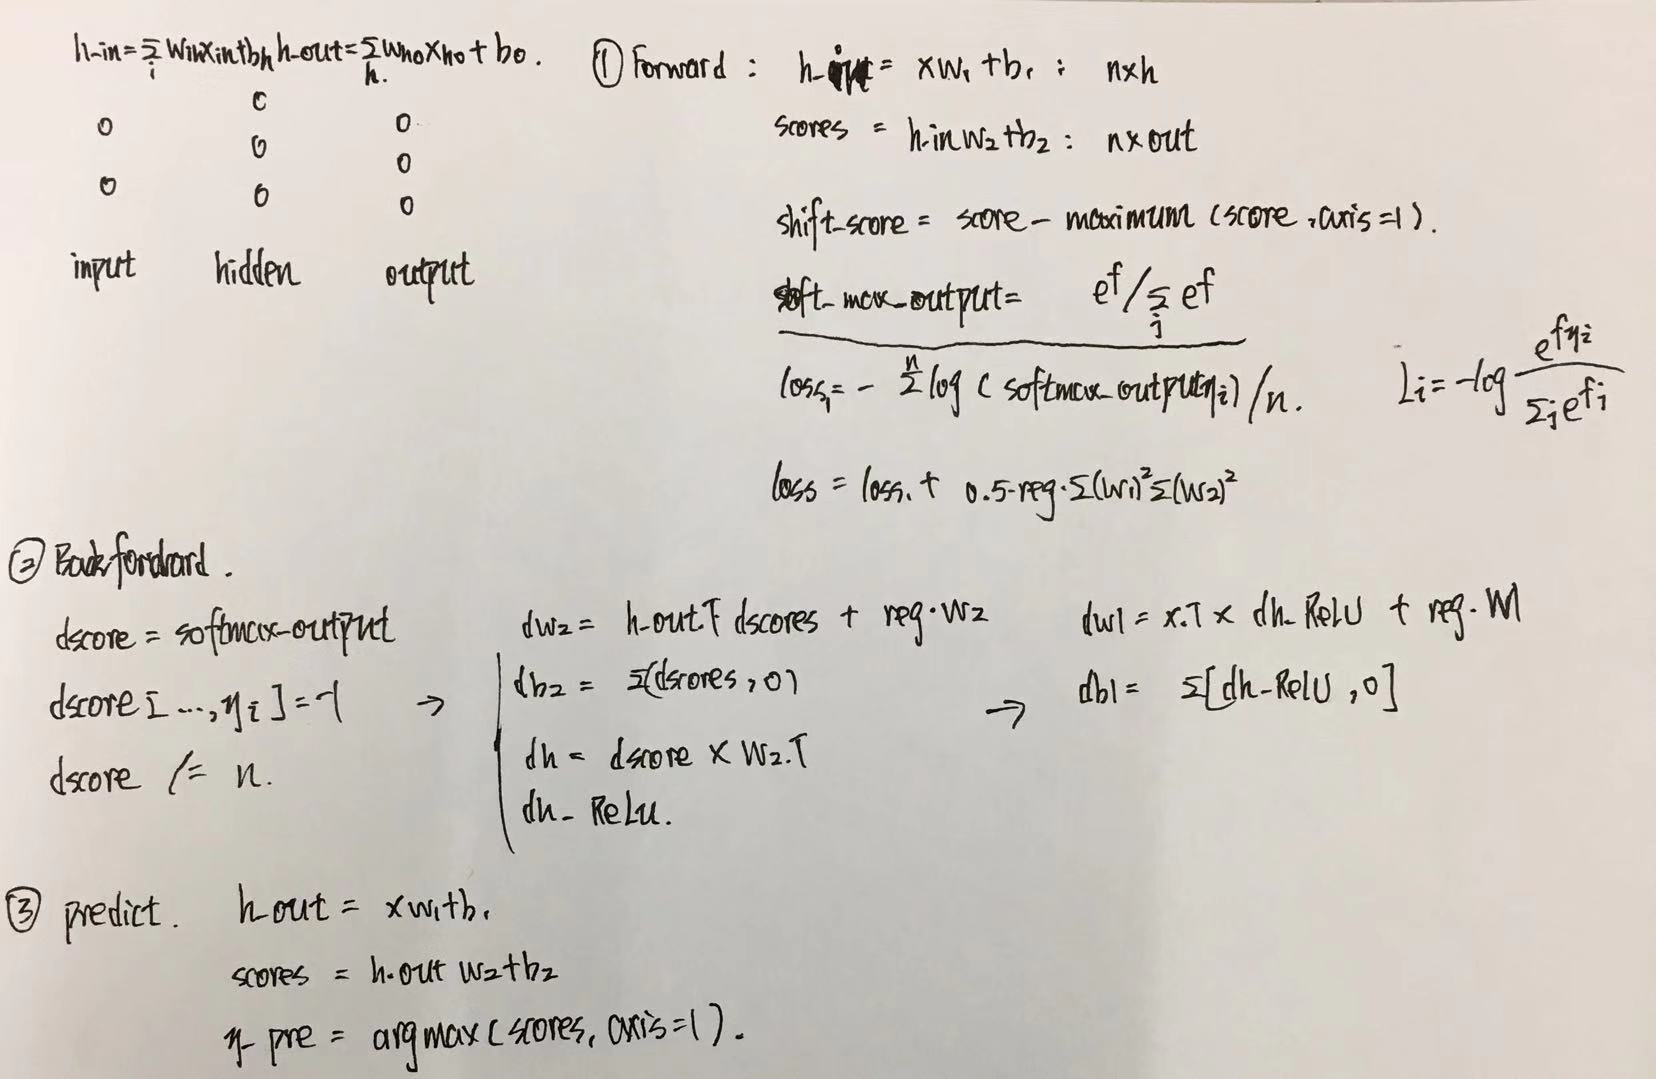 h-in = Σ_i Win Xin + bh h-out = Σ_h. Who Xho + bo.
input hidden output
① Forward : h-in = xw₁ + b₁ : n×h
scores = h-in w₂ + b₂ : n×out
shift-score = score - maximum (score, axis=1).
soft-max-output = e^f / Σ_j e^f
loss₁ = - Σ^n log ( softmax-output yi) / n.
Li = -log e^fyi / Σj e^fj
loss = loss₁ + 0.5·reg·Σ(w₁)² Σ(w₂)²
② Back fordard.
dscore = softmax-output
dscore [ ..., yi ] = -1
dscore /= n.
→
dw₂ = h-out.T dscores + reg·w₂
db₂ = Σ(dscores, 0)
dh = dscore × W₂.T
dh- ReLu.
→
dw1 = x.T × dh_ReLU + reg. W1
db1 = Σ[dh-RelU, 0]
③ predict. h-out = xw₁+b₁
scores = h-out w₂+b₂
y- pre = argmax ( scores, axis=1).